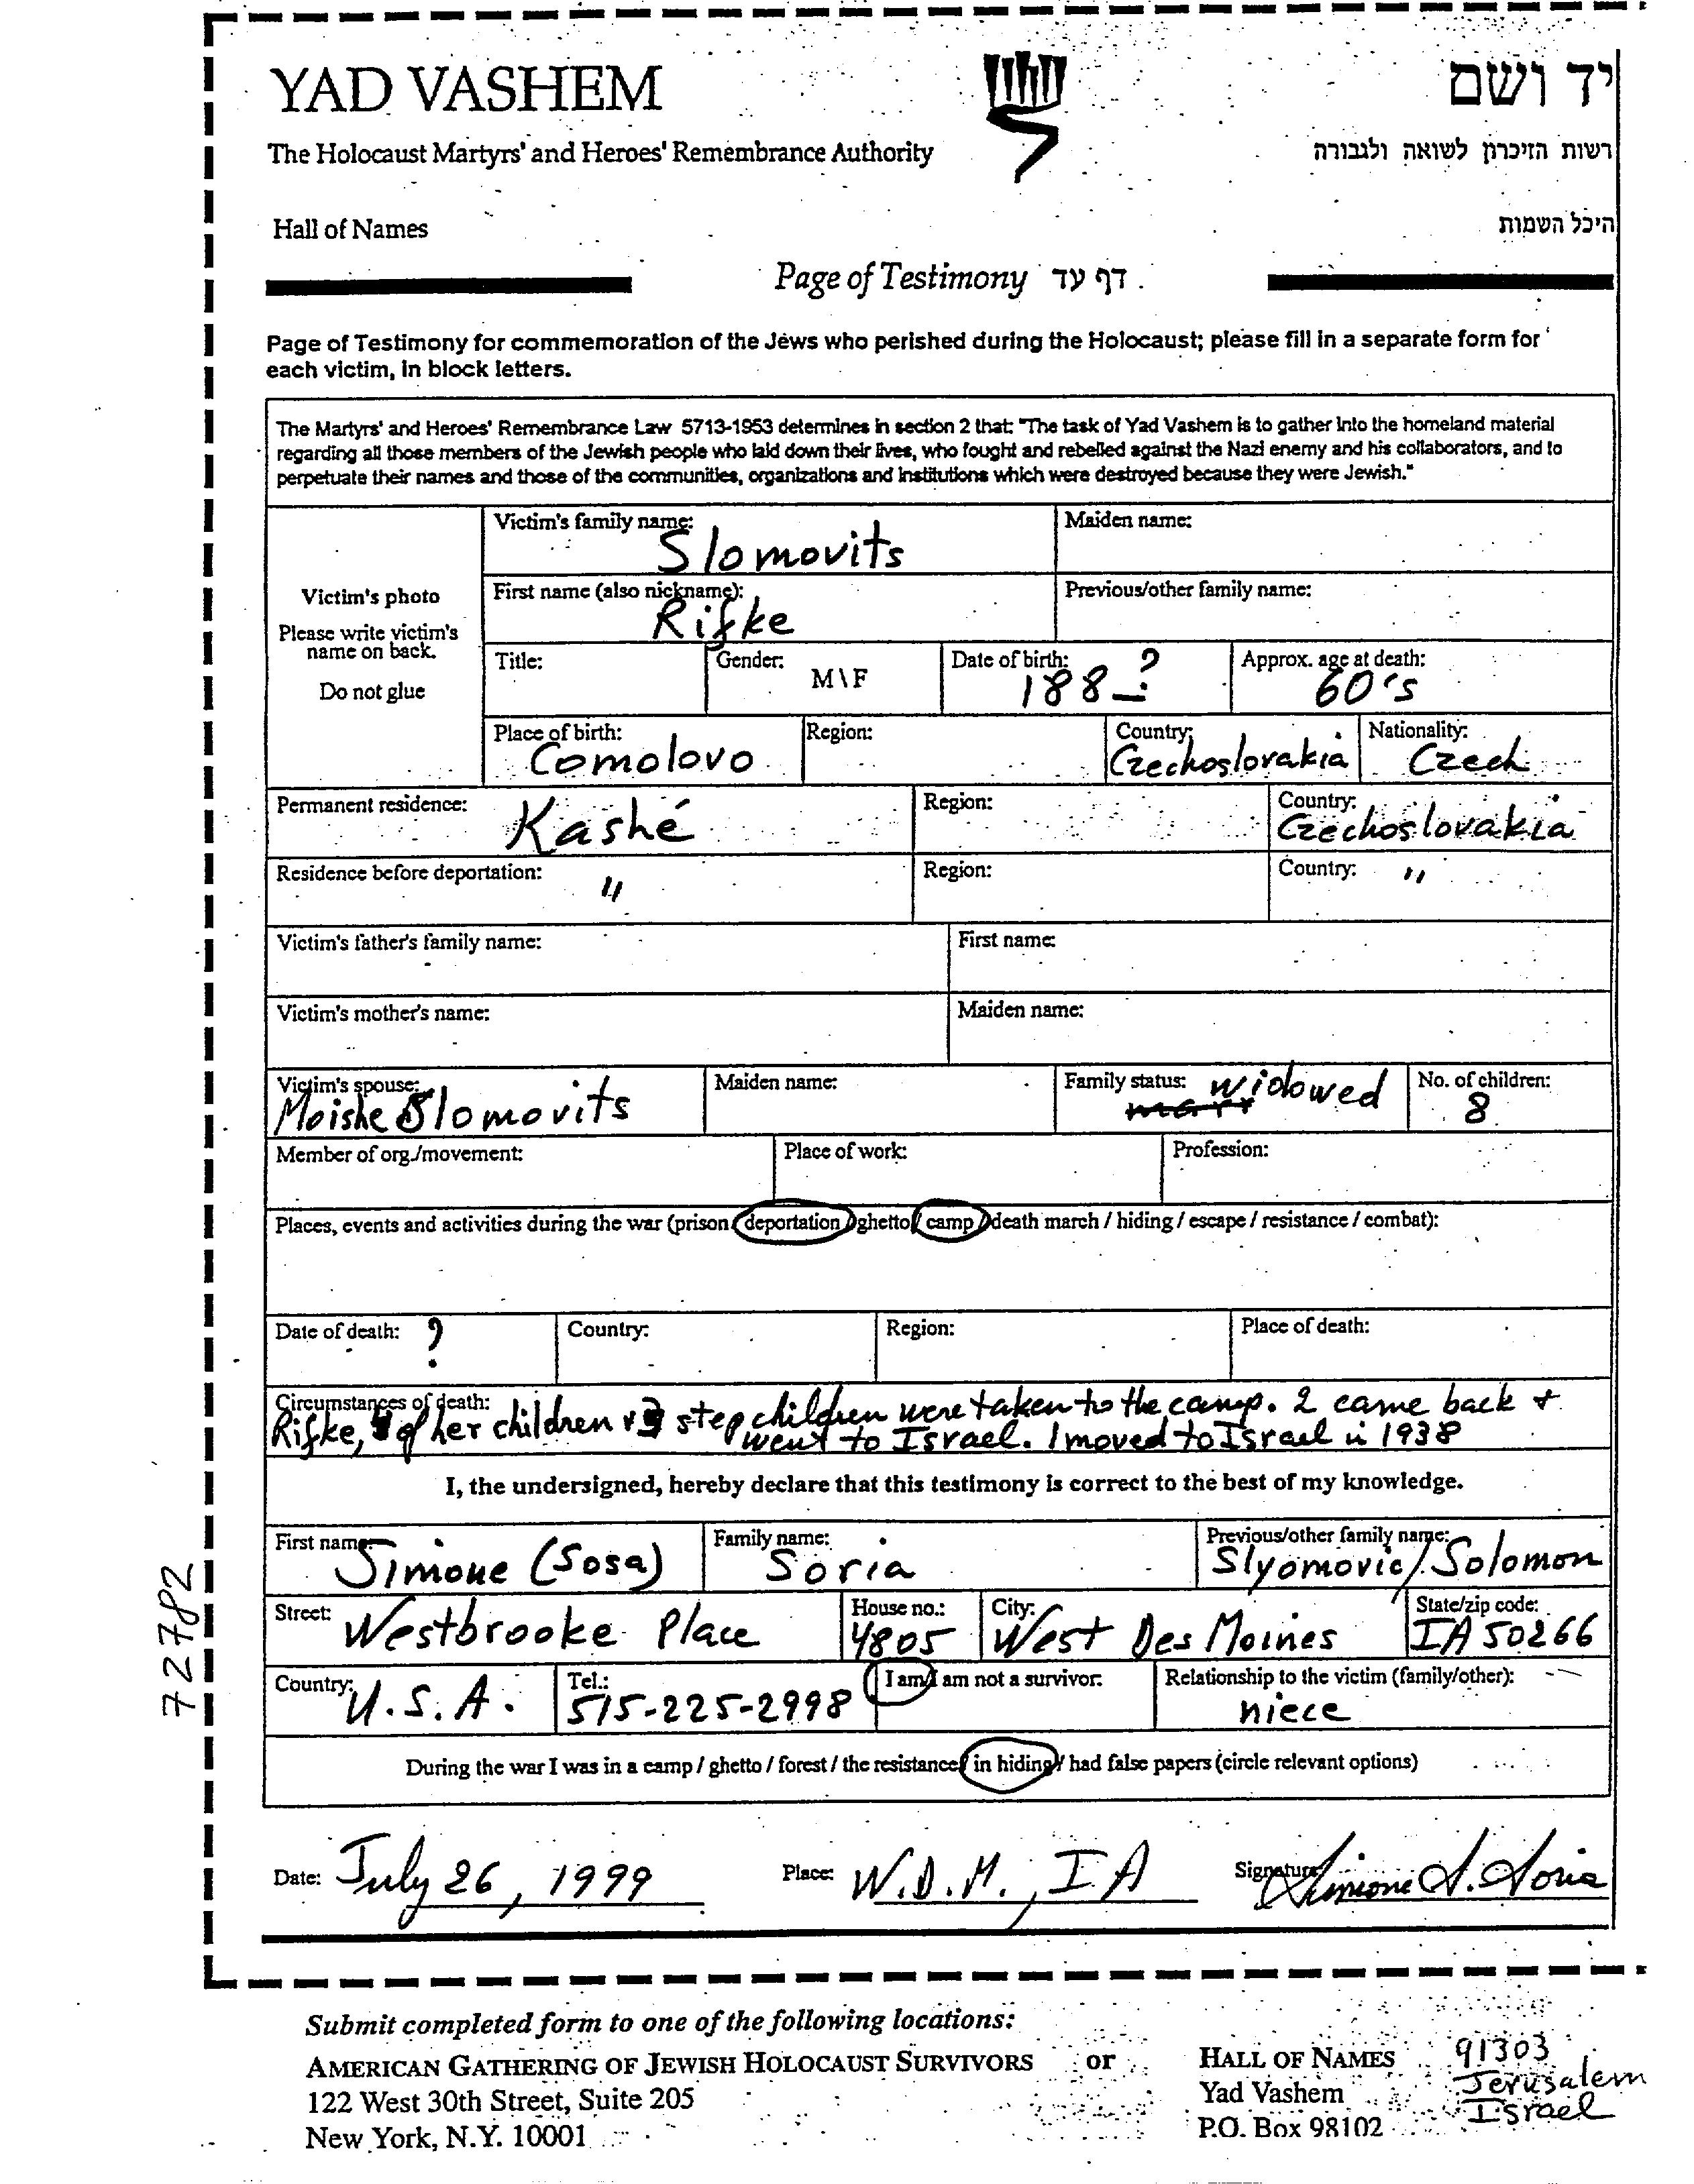 YAD VASHEM
יד ושם
The Holocaust Martyrs' and Heroes' Remembrance Authority
רשות הזיכרון לשואה ולגבורה
Hall of Names
היכל השמות
Page of Testimony דף עד
Page of Testimony for commemoration of the Jews who perished during the Holocaust; please fill in a separate form for
each victim, in block letters.
The Martyrs' and Heroes' Remembrance Law 5713-1953 determines in section 2 that: "The task of Yad Vashem is to gather into the homeland material
regarding all those members of the Jewish people who laid down their lives, who fought and rebelled against the Nazi enemy and his collaborators, and to
perpetuate their names and those of the communities, organizations and institutions which were destroyed because they were Jewish."
Victim's photo
Please write victim's
name on back.
Do not glue
Victim's family name: Slomovits
Maiden name:
First name (also nickname): Rifke
Previous/other family name:
Title:
Gender: M\F
Date of birth: 188-?
Approx. age at death: 60's
Place of birth: Comolovo
Region:
Country: Czechoslovakia
Nationality: Czech
Permanent residence: Kashé
Region:
Country: Czechoslovakia
Residence before deportation: "
Region:
Country: "
Victim's father's family name:
First name:
Victim's mother's name:
Maiden name:
Victim's spouse: Moishe Slomovits
Maiden name:
Family status: widowed
No. of children: 8
Member of org./movement:
Place of work:
Profession:
Places, events and activities during the war (prison / deportation / ghetto / camp / death march / hiding / escape / resistance / combat):
Date of death: ?
Country:
Region:
Place of death:
Circumstances of death:
Rifke, of her children + step children were taken to the camp. 2 came back +
went to Israel. I moved to Israel in 1938
I, the undersigned, hereby declare that this testimony is correct to the best of my knowledge.
First name: Simone (Sosa)
Family name: Soria
Previous/other family name: Slyomovic/Solomon
Street: Westbrooke Place
House no.: 4805
City: West Des Moines
State/zip code: IA 50266
Country: U.S.A.
Tel.: 515-225-2998
I am/I am not a survivor.
Relationship to the victim (family/other): niece
During the war I was in a camp / ghetto / forest / the resistance / in hiding / had false papers (circle relevant options)
Date: July 26, 1999
Place: W.D.M., IA
Signature: Simione S. Soria
72782
Submit completed form to one of the following locations:
AMERICAN GATHERING OF JEWISH HOLOCAUST SURVIVORS
122 West 30th Street, Suite 205
New York, N.Y. 10001
or
HALL OF NAMES
Yad Vashem
P.O. Box 98102
91303
Jerusalem
Israel